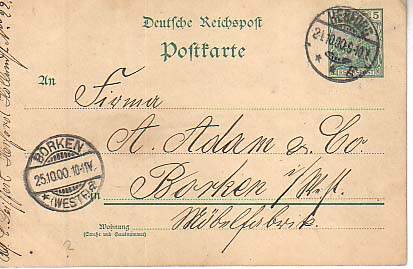 Deutsche Reichspost
Postkarte
5
24.10.00.
An
Firma
A. Adam & Co.
BORKEN
25.10.00.10-11V.
(WESTF.)
in Borken i/Westf.
Möbelfabrik.
Wohnung
(Straße und Hausnummer)